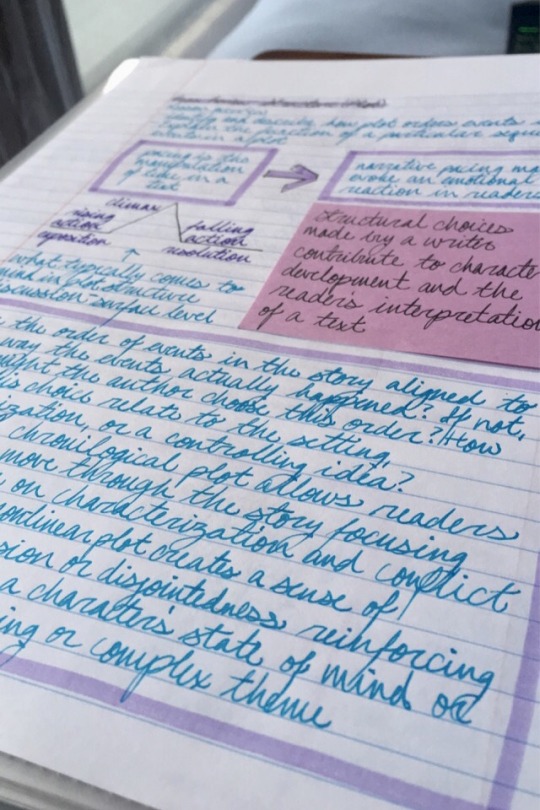 identify and describe how plot orders events
explain the function of a particular
within a plot
pacing is the
manipulation
of time in a
text
narrative pacing
evoke an emotional
reaction in readers
climax
rising
action
exposition
falling
action
resolution
structural choices
made by a writer
contribute to character
development and the
readers interpretation
of a text
what typically comes to
mind in plot structure
discussion-surface level
the order of events in the story aligned to
way the events actually happened? If not,
might the author choose this order? How
choice relate to the setting,
or a controlling idea?
chronilogical plot allows readers
move through the story focusing
on characterization and conflict
nonlinear plot creates a sense of
or disjointedness reinforcing
a character's state of mind or
or complex theme